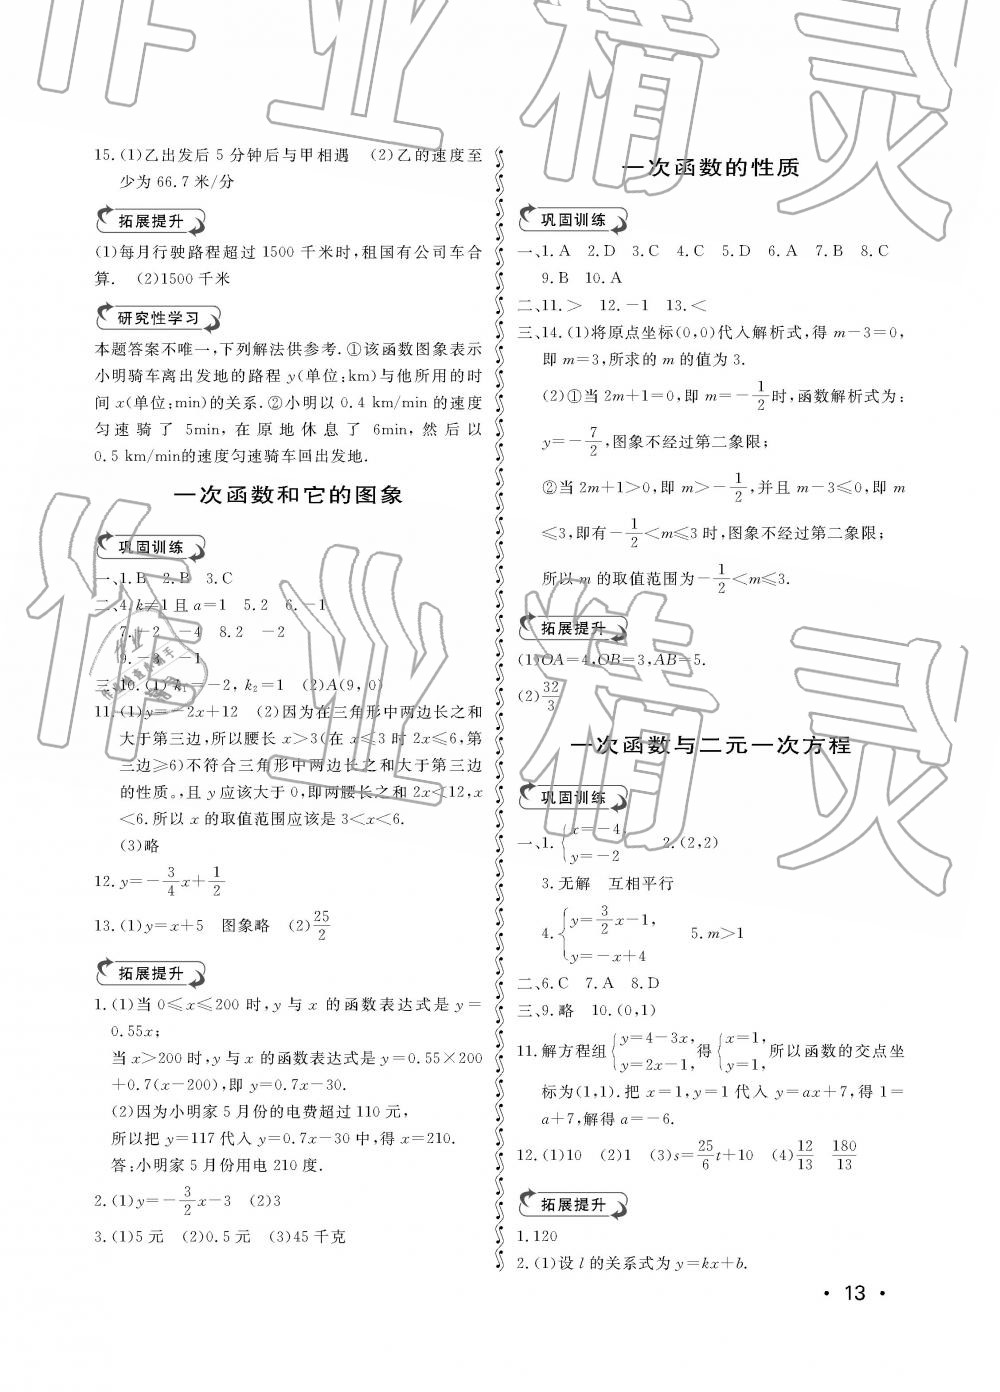 作业精灵
15.(1)乙出发后5分钟后与甲相遇 (2)乙的速度至
少为66.7米/分
拓展提升
(1)每月行驶路程超过1500千米时,租国有公司车合
算. (2)1500千米
研究性学习
本题答案不唯一,下列解法供参考.①该函数图象表示
小明骑车离出发地的路程y(单位:km)与他所用的时
间x(单位:min)的关系.②小明以0.4 km/min的速度
匀速骑了5min,在原地休息了6min,然后以
0.5 km/min的速度匀速骑车回出发地.
一次函数和它的图象
巩固训练
一、1.B 2.B 3.C
二、4.k≠1且a=1 5.2 6.-1
7.-2 -4 8.2 -2
9.-3 -1
三、10.(1)k₁=-2,k₂=1 (2)A(9,0)
11.(1)y=-2x+12 (2)因为在三角形中两边长之和
大于第三边,所以腰长x>3(在x≤3时2x≤6,第
三边≥6)不符合三角形中两边长之和大于第三边
的性质。,且y应该大于0,即两腰长之和2x<12,x
<6.所以x的取值范围应该是3<x<6.
(3)略
12.y=-3/4x+1/2
13.(1)y=x+5 图象略 (2)25/2
拓展提升
1.(1)当0≤x≤200时,y与x的函数表达式是y=
0.55x;
当x>200时,y与x的函数表达式是y=0.55×200
+0.7(x-200),即y=0.7x-30.
(2)因为小明家5月份的电费超过110元,
所以把y=117代入y=0.7x-30中,得x=210.
答:小明家5月份用电210度.
2.(1)y=-3/2x-3 (2)3
3.(1)5元 (2)0.5元 (3)45千克
一次函数的性质
巩固训练
一、1.A 2.D 3.C 4.C 5.D 6.A 7.B 8.C
9.B 10.A
二、11.> 12.-1 13.<
三、14.(1)将原点坐标(0,0)代入解析式,得m-3=0,
即m=3,所求的m的值为3.
(2)①当2m+1=0,即m=-1/2时,函数解析式为:
y=-7/2,图象不经过第二象限;
②当2m+1>0,即m>-1/2,并且m-3≤0,即m
≤3,即有-1/2<m≤3时,图象不经过第二象限;
所以m的取值范围为-1/2<m≤3.
拓展提升
(1)OA=4,OB=3,AB=5.
(2)32/3
一次函数与二元一次方程
巩固训练
一、1.{x=-4, y=-2 2.(2,2)
3.无解 互相平行
4.{y=3/2x-1, y=-x+4 5.m>1
二、6.C 7.A 8.D
三、9.略 10.(0,1)
11.解方程组{y=4-3x, y=2x-1,得{x=1, y=1,所以函数的交点坐
标为(1,1).把x=1,y=1代入y=ax+7,得1=
a+7,解得a=-6.
12.(1)10 (2)1 (3)s=25/6t+10 (4)12/13 180/13
拓展提升
1.120
2.(1)设l的关系式为y=kx+b.
· 13 ·
作业精灵